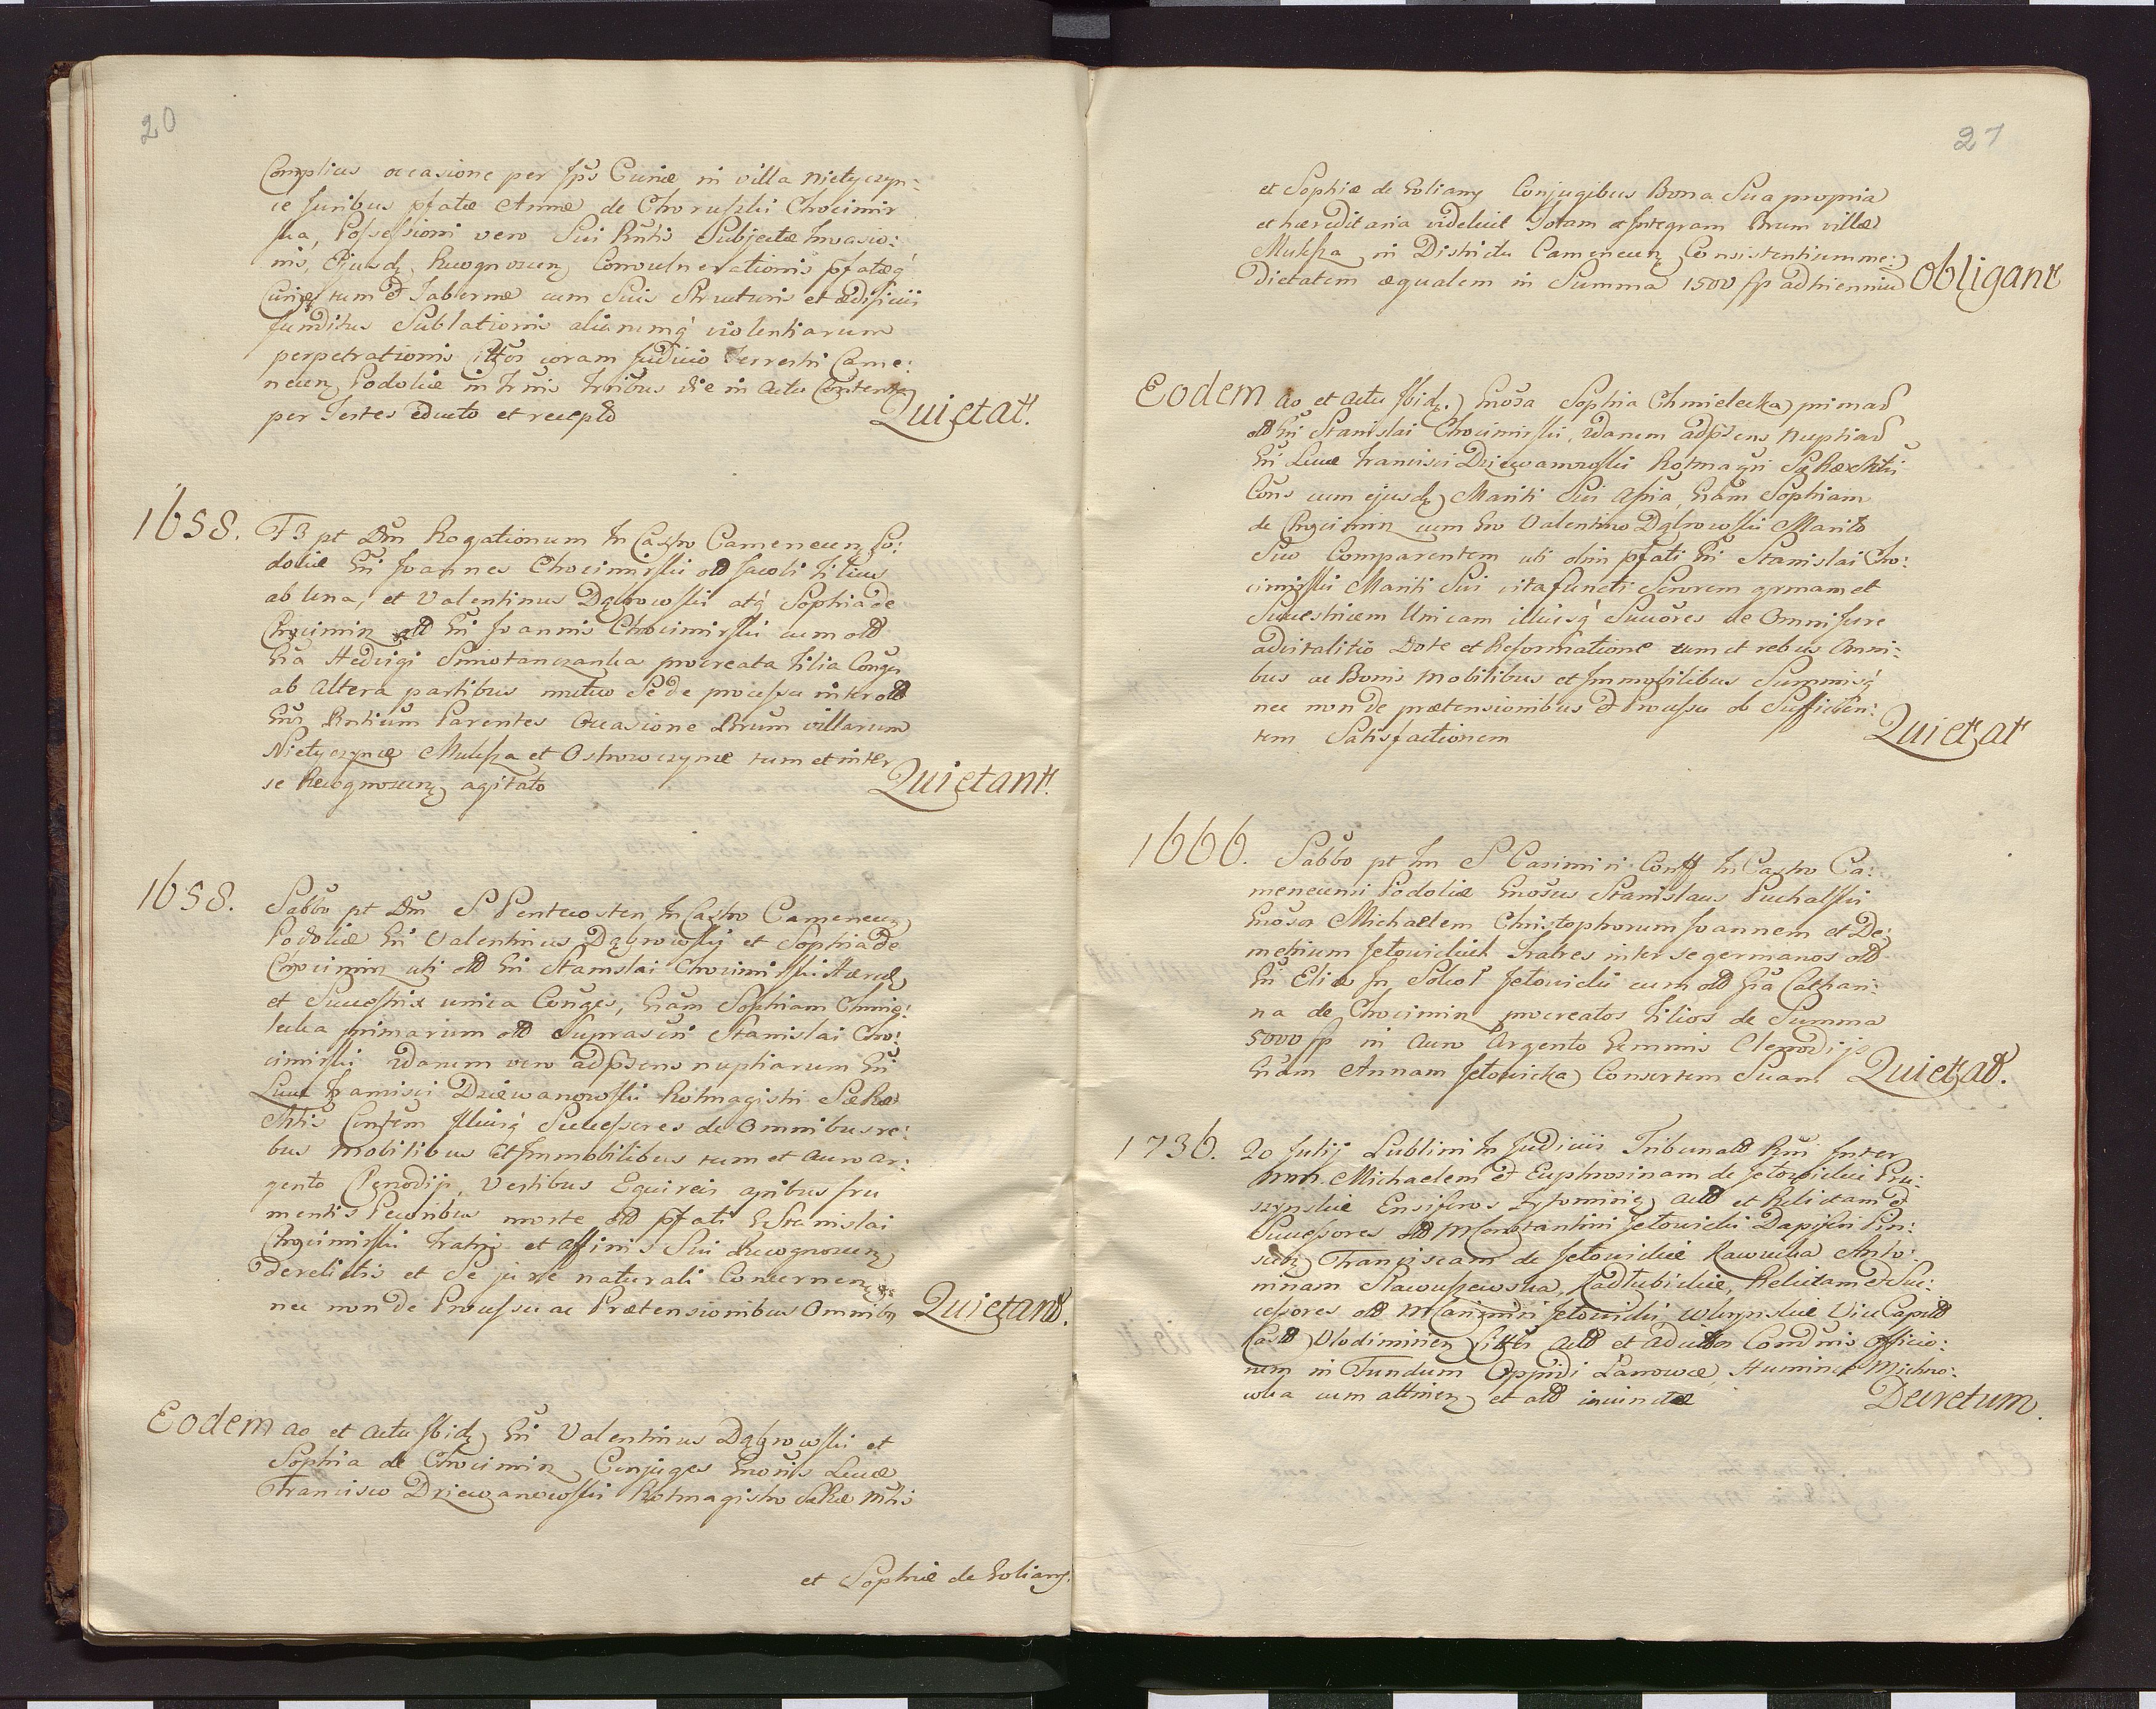 20
Complius occasione per Jps Curiæ in villa Nietyczyn:
ce Juribus pfatæ Annæ de Choruszki Chocimir
ska, Possessioni vero Sui Rntis Subjectæ Invasio:
nis, Ejusdz Recognoscenz Convulnerationis pfatæq
Curiæ tum et Tabernæ cum Suis Structuris et ædificiis
funditus Sublationis aliarumq violentiarum
perpetrationis coram Judicio Terrestri Came:
necenz Podoliæ in Trinis Tribus die in Actu Contentz
per Testes educto et recepto Quietat.
1658. F3 pt Dm Rogationum In Castro Camenecenz Po:
doliæ Gni Joannes Chocimirski old Jacobi Filius
ab Una, et Valentinus Dąbrowski atq Sophia de
Chocimirz old Gni Joannis Chocimirski cum old
Gna Hedvigi Smiotanczanka procreata Filia Conges
ab Altera partibus mutuo Se de processu inter old
Gnos Rntium Parentes Occasione Brum villarum
Nietyczynce Muksza et Ostrowczyzne tum et inter
se Recognoscenz agitato Quietant.
1658. Sabbo pt Dm S Pentecosten In Castro Camenecenz
Podoliæ Gni Valentinus Dąbrowskij et Sophia de
Chocimirz uti old Gni Stanislai Chocimirski Hæres
et Successtrix unica Conges, Gnam Sophiam Chmie:
lecka primarum old Suprascri Stanislai Cho:
cimirski 2darum vero ad psens nuptiarum Gni
Lucæ Francisci Dziewanowski Rotmagistri SæRæ
Mttis Contem Illiusq Successores de Omnibus re:
bus Mobilibus et Immobilibus tum et Auro Ar:
gento Clenodijs, Vestibus Equireis apibus fru
mentis Pecoribus morte old pfati G Stanislai
Chocimirski Fratris et affinis Sui Recognoscenz
derelictis et Se jure naturali Concernen
nec non de Processu ac Prætensionibus Omnibz Quietant.
Eodem Ao et Actu Ibidz Gni Valentinus Dąbrowski et
Sophia de Chocimirz Conjuges Gnosis Lucæ
Francisco Dziewanowski Rotmagistro SæRæ Mttis
et Sophiæ de Goliany.
21
et Sophiæ de Goliany Conjugibus Bona Sua propria
et hæreditaria videlicet Totam et Integram Brum villæ
Muksza in Districtu Camenecenz Consistentium me:
dietatem æqualem in Summa 1500 fp ad trienniu Obligant
Eodem Ao et Actu Ibidz. Gnosa Sophia Chmielecka primar
old Gni Stanislai Chocimirski, 2darum ad psens nuptiar
Gni Lucæ Francisci Dziewanowski Rotmagri SæRæMttis
Cons cum ejusdz Mariti Sui Assia, Gnam Sophiam
de Chocimirz cum Gno Valentino Dąbrowski Marito
Suo Comparentem uti olim pfati Gni Stanislai Cho:
cimirski Mariti Sui vita functi Sororem grmam et
Successtricem Unicam illiusq Succores de Omni Jure
advitalitio Dote et Reformatione tum et rebus Omni:
bus ac Bonis Mobilibus et Immobilibus Summisq
nec non de prætensionibus et Processu ob Sufficien:
tem Satisfactionem Quietat
1666. Sabbo pt Fm S Casimiri Conff In Castro Ca:
menecensi Podoliæ Gnosus Stanislaus Puchalski
Gnosos Michaelem Christophorum Joannem et De:
metrium Jełowickich Fratres inter se germanos old
Gni Eliæ Jełowicki cum old Gna Cathari:
na de Chocimirz procreatos Filios de Summa
5000 fp in Auro Argento Gemmis Clenodijs
Gnam Annam Jełowicka Consortem Suam Quietat.
1736. 20 Julij Lublini In Judiciis Tribunald Rni Inter
Mnn. Michaelem et Euphrosinam de Jełowickie Gru:
szynskie Ensiferos Zytomirz Actd et Relictam et
Successores old M Constantini Jełowicki Dapiferi Pin:
scenz Franciscam de Jełowickie Rawucka Anto:
ninam Stawuszewska, Kadłubickie, Relictam et Suc:
cessores old M Casimiri Jełowicki Wołynskie Vice Capitd
Castd Vlodimirien actd et ad Condnis Officio:
rum in Fundum Oppidi Łanowce, Humince Michno:
wka cum attinenz et old Decretum.